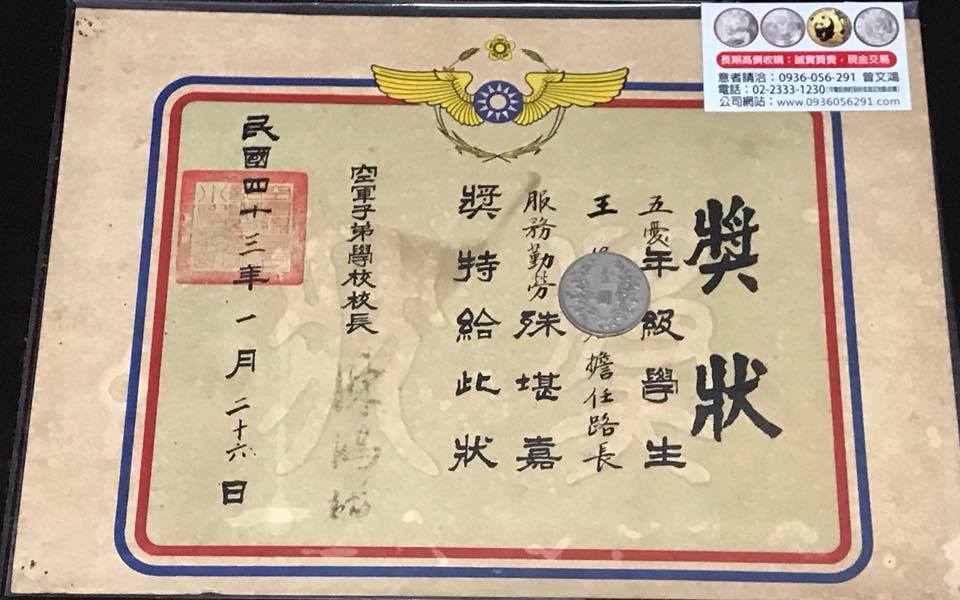 獎狀
五憂年級學生
王
擔任路長
服務勤勞殊堪嘉
獎特給此狀
空軍子弟學校校長
民國四十三年一月二十六日
長期高價收購：誠實買賣，現金交易
意者請洽：0936-056-291 曾文鴻
電話：02-2333-1230
公司網站：www.0936056291.com